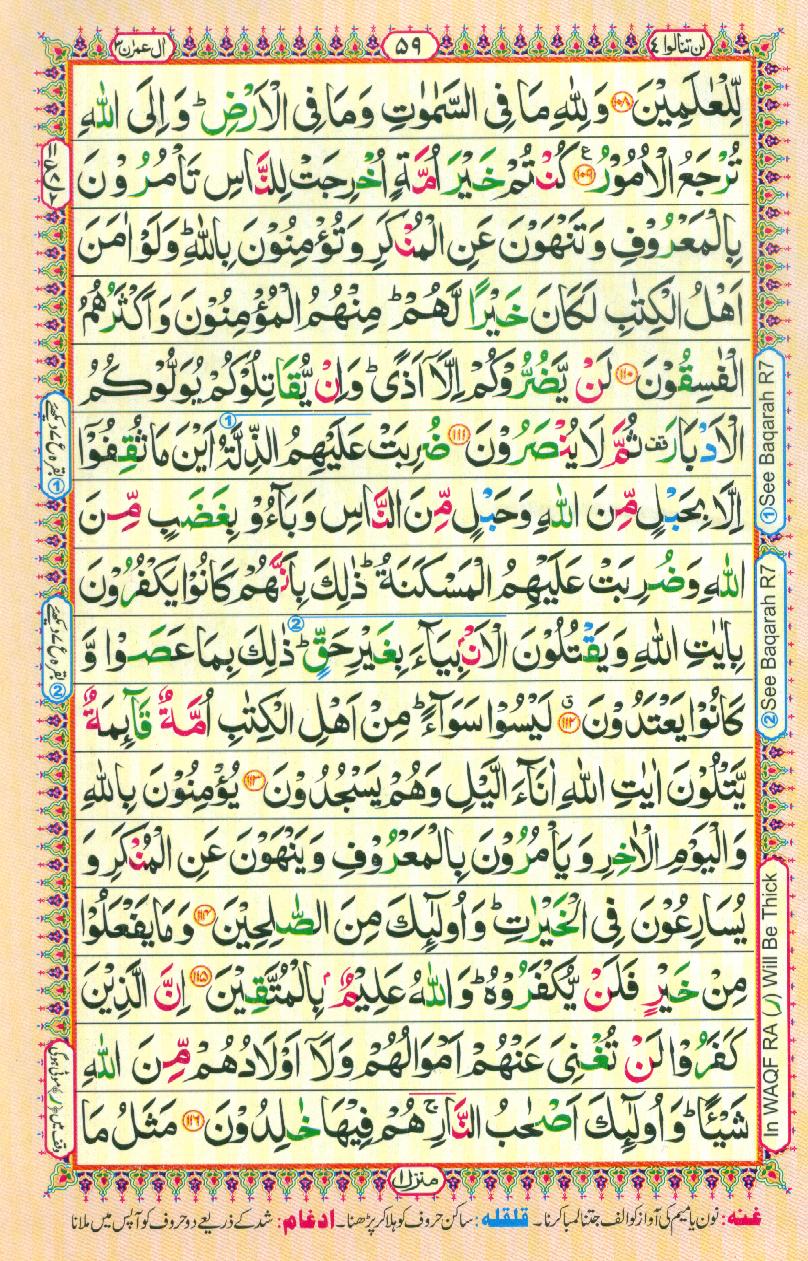 لن تنالوا ٤
٥٩
ال عمرٰن ٣
لِّلْعٰلَمِيْنَ ۝١٠٨ وَلِلّٰهِ مَا فِى السَّمٰوٰتِ وَمَا فِى الْاَرْضِ ؕ وَ اِلَى اللّٰهِ
تُرْجَعُ الْاُمُوْرُ ۝١٠٩ ع كُنْتُمْ خَيْرَ اُمَّةٍ اُخْرِجَتْ لِلنَّاسِ تَاْمُرُوْنَ
بِالْمَعْرُوْفِ وَ تَنْهَوْنَ عَنِ الْمُنْكَرِ وَ تُؤْمِنُوْنَ بِاللّٰهِ ؕ وَلَوْ اٰمَنَ
اَهْلُ الْكِتٰبِ لَكَانَ خَيْرًا لَّهُمْ ؕ مِنْهُمُ الْمُؤْمِنُوْنَ وَ اَكْثَرُهُمُ
الْفٰسِقُوْنَ ۝١١٠ لَنْ يَّضُرُّوْكُمْ اِلَّاۤ اَذًى ؕ وَ اِنْ يُّقَاتِلُوْكُمْ يُوَلُّوْكُمُ
الْاَدْبَارَ قف ثُمَّ لَا يُنْصَرُوْنَ ۝١١١ ضُرِبَتْ عَلَيْهِمُ الذِّلَّةُ ① اَيْنَ مَا ثُقِفُوْۤا
اِلَّا بِحَبْلٍ مِّنَ اللّٰهِ وَحَبْلٍ مِّنَ النَّاسِ وَبَآءُوْ بِغَضَبٍ مِّنَ
اللّٰهِ وَضُرِبَتْ عَلَيْهِمُ الْمَسْكَنَةُ ؕ ذٰلِكَ بِاَنَّهُمْ كَانُوْا يَكْفُرُوْنَ
بِاٰيٰتِ اللّٰهِ وَ يَقْتُلُوْنَ الْاَنْۢبِيَآءَ بِغَيْرِ حَقٍّ ؕ ② ذٰلِكَ بِمَا عَصَوْا وَّ
كَانُوْا يَعْتَدُوْنَ ۝١١٢ ق لَيْسُوْا سَوَآءً ؕ مِنْ اَهْلِ الْكِتٰبِ اُمَّةٌ قَآئِمَةٌ
يَّتْلُوْنَ اٰيٰتِ اللّٰهِ اٰنَآءَ الَّيْلِ وَهُمْ يَسْجُدُوْنَ ۝١١٣ يُؤْمِنُوْنَ بِاللّٰهِ
وَالْيَوْمِ الْاٰخِرِ وَ يَاْمُرُوْنَ بِالْمَعْرُوْفِ وَ يَنْهَوْنَ عَنِ الْمُنْكَرِ وَ
يُسَارِعُوْنَ فِى الْخَيْرٰتِ ؕ وَ اُولٰٓئِكَ مِنَ الصّٰلِحِيْنَ ۝١١٤ وَمَا يَفْعَلُوْا
مِنْ خَيْرٍ فَلَنْ يُّكْفَرُوْهُ ؕ وَ اللّٰهُ عَلِيْمٌۢ بِالْمُتَّقِيْنَ ۝١١٥ اِنَّ الَّذِيْنَ
كَفَرُوْا لَنْ تُغْنِىَ عَنْهُمْ اَمْوَالُهُمْ وَلَاۤ اَوْلَادُهُمْ مِّنَ اللّٰهِ
شَيْـًٔا ؕ وَ اُولٰٓئِكَ اَصْحٰبُ النَّارِ ۚ هُمْ فِيْهَا خٰلِدُوْنَ ۝١١٦ مَثَلُ مَا
منزل ١
غنه: نون یا میم کی آواز کو الف جتنا لمبا کرنا۔ قلقله: ساکن حروف کو ہلا کر پڑھنا۔ ادغام: شد کے ذریعے دو حروف کو آپس میں ملانا
① See Baqarah R7
② See Baqarah R7
In WAQF RA (ر) Will Be Thick
① بقرہ ع ۷ دیکھئے
② بقرہ ع ۷ دیکھئے
وقف میں (ر) موٹی ہوگی